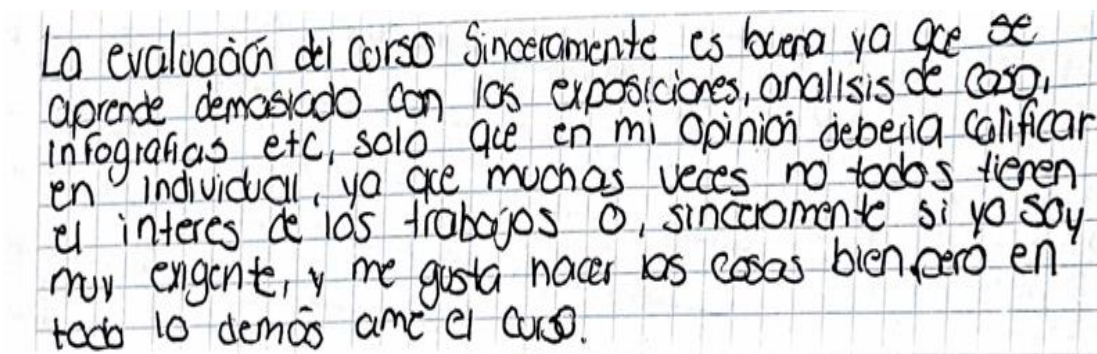 La evaluación del curso Sinceramente es buena ya que se
aprende demasiado con las exposiciones, analisis de caso,
infografias etc, solo que en mi opinión deberia calificar
en individual, ya que muchas veces no todos tienen
el interes de los trabajos o, sinceramente si yo soy
muy exigente, y me gusta hacer las cosas bien, pero en
todo lo demás amé el curso.